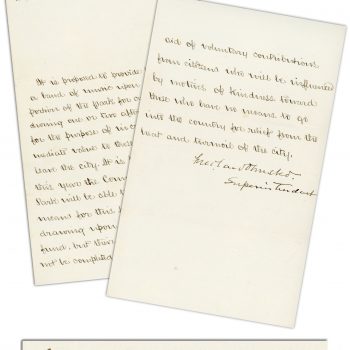 It is proposed to provide
a band of music upon
portion of the park for a
drawing one or two after
for the purpose of
mediate value to those
leave the city. It is
this year the Com
Park will be able
means for this
drawing upon
fund, but this
not be completed
aid of voluntary contributions
from citizens who will be influenced
by motives of kindness toward
those who have no means to go
into the country for relief from the
heat and turmoil of the city.
Fred. Law Olmsted
Superintendent